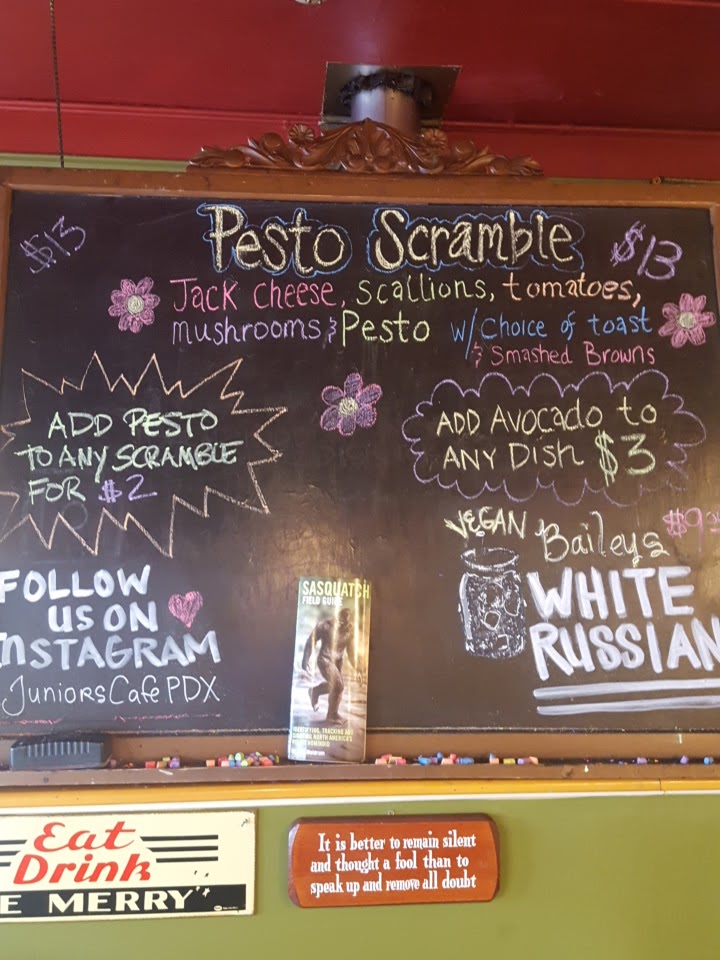 $13
Pesto Scramble
$13
Jack cheese, scallions, tomatoes,
mushrooms & Pesto w/ Choice of toast
& Smashed Browns
ADD PESTO
TO ANY SCRAMBLE
FOR $2
ADD Avocado to
ANY Dish $3
VEGAN Baileys
WHITE
RUSSIAN
FOLLOW
US ON
INSTAGRAM
JuniorsCafePDX
SASQUATCH
FIELD GUIDE
IDENTIFYING, TRACKING AND
NORTH AMERICA'S
Eat
Drink
E MERRY
It is better to remain silent
and thought a fool than to
speak up and remove all doubt